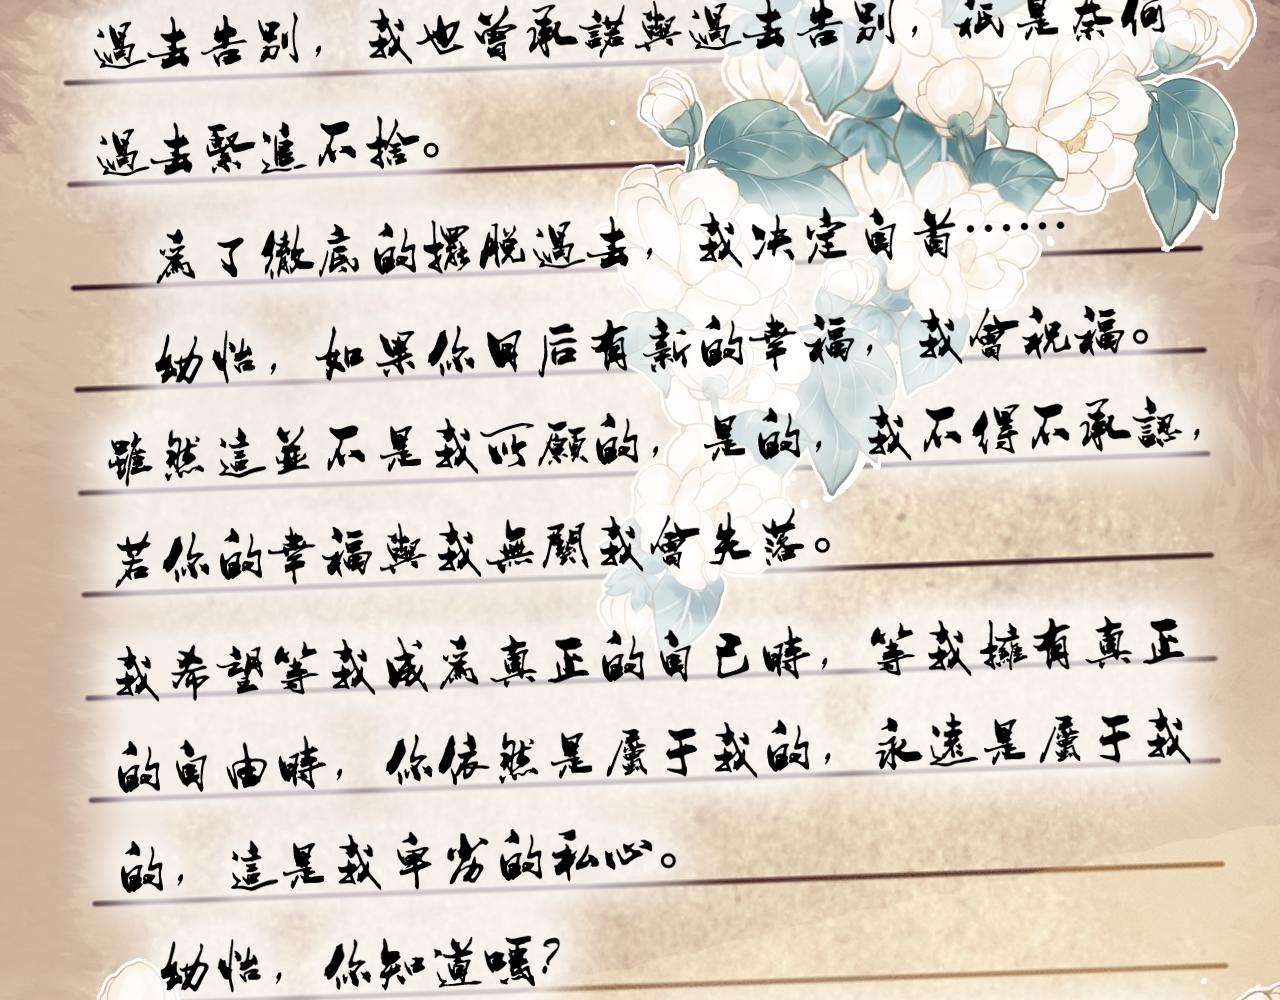 過去告別，我也曾承諾與過去告別，祇是奈何
過去緊追不捨。
為了徹底的擺脫過去，我決定自首……
幼怡，如果你日后有新的幸福，我會祝福。
雖然這並不是我所願的，是的，我不得不承認，
若你的幸福與我無關我會失落。
我希望等我成為真正的自己時，等我擁有真正
的自由時，你依然是屬于我的，永遠是屬于我
的，這是我卑劣的私心。
幼怡，你知道嗎？